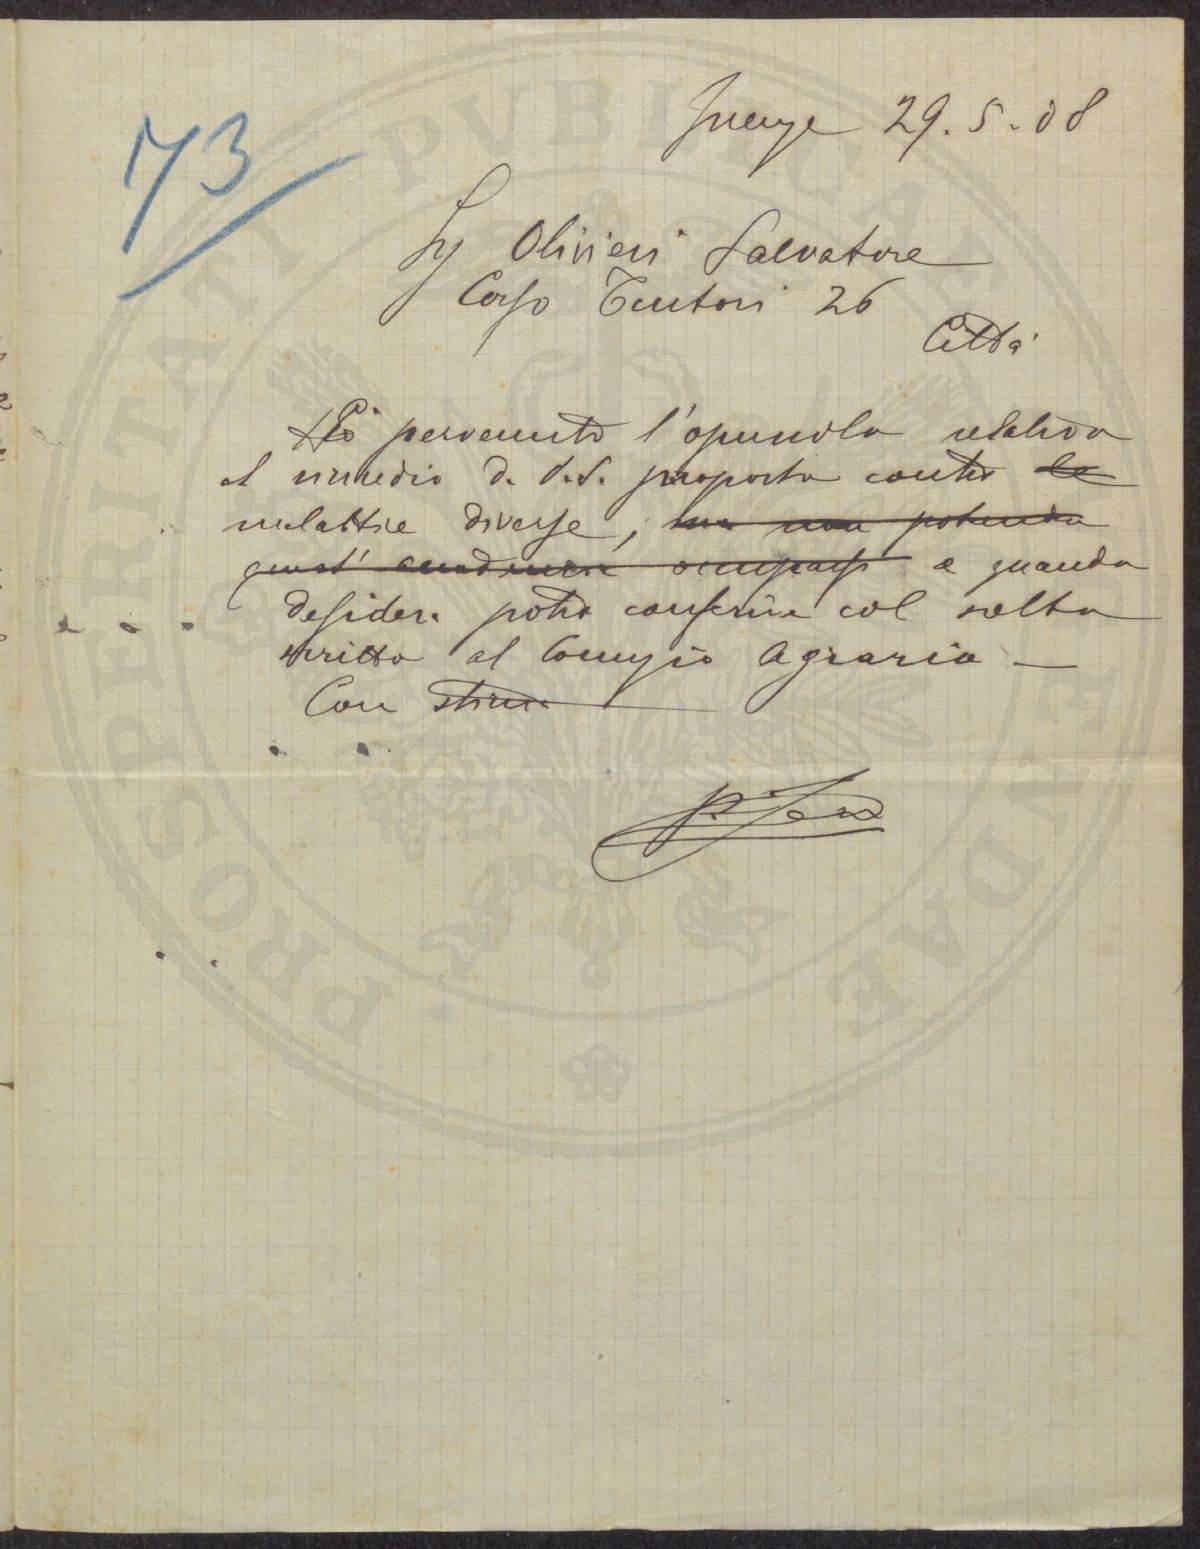 73
Firenze 29.5.08
Sig Olivieri Salvatore
Corso Tintori 26
Città
Ho pervenuto l'opuscolo relativo
al rimedio d. V.S. proposto contro le
malattie diverse, ma non potendo
quest' accademia occuparsi e quando
desidera potrà conferire col sotto
scritto al Comizio Agrario —
Con stima
PROSPERITATI PVBLICAE AVGENDAE